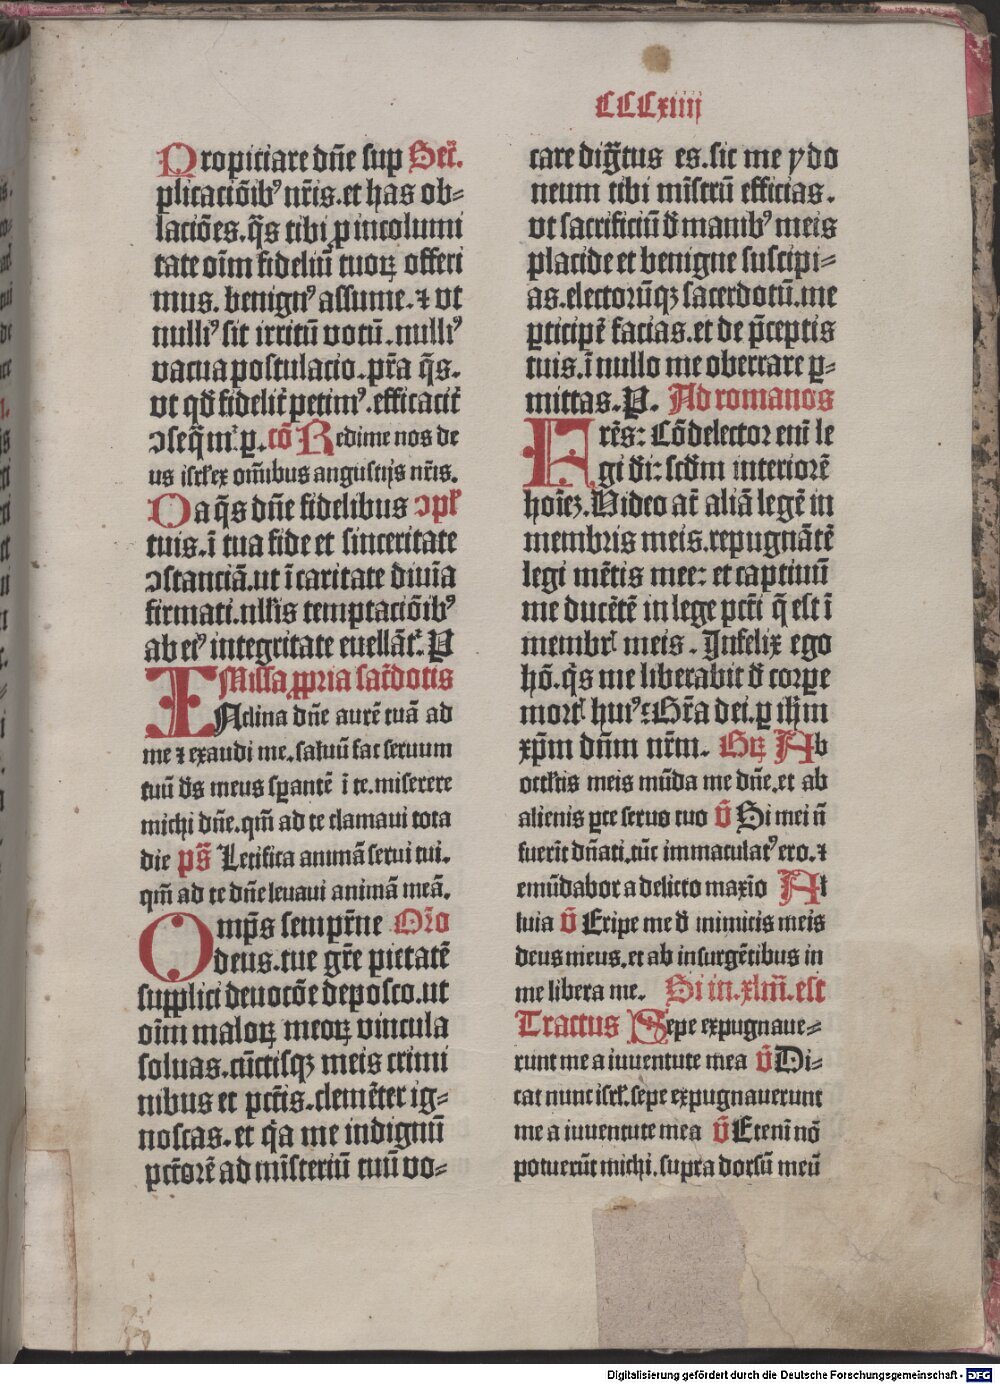 CCCxiiij
Propiciare dn̄e sup Secr̄.
plicaciōibꝰ nr̄is. et has ob⸗
laciōes. q̄s tibi ꝓ incolumi
tate oīm fideliū tuoꝝ offeri
mus. benignꝰ assume. ⁊ vt
nulliꝰ sit irritū votū. nulliꝰ
vacua postulacio. pr̄a q̄s.
vt qd̄ fidelit̄ petimꝰ. efficacit̄
ↄseq̄mr̄. ꝑ. cō Redime nos de
us isrl̄ ex om̄ibus angustijs nr̄is.
Da q̄s dn̄e fidelibus ↄpl̄
tuis. ī tua fide et sinceritate
ↄstanciā. ut ī caritate diuīa
firmati. nll̄is temptaciōibꝰ
ab eiꝰ integritate euellāt̄. P
Missa ꝓpria sac̄dotis
INclina dn̄e aurē tuā ad
me ⁊ exaudi me. saluū fac seruum
tuū ds̄ meus sꝑantē ī te. miserere
michi dn̄e. qm̄ ad te clamaui tota
die ps̄ Letifica animā serui tui.
qm̄ ad te dn̄e leuaui animā meā.
Omps̄ sempr̄ne Or̄o
deus. tue gr̄e pietatē
supplici deuocōe deposco. ut
oīm maloꝝ meoꝝ vincula
soluas. cūctisqꝫ meis crimi
nibus et pctīs. clemēter ig⸗
noscas. et q̄a me indignū
pctōrē ad mīsteriū tuū vo⸗
care diḡtus es. sic me ydo
neum tibi mīstrū efficias.
vt sacrificiū d̄ manibꝰ meis
placide et benigne suscipi⸗
as. electorūqꝫ sacerdotū. me
ꝑticipē facias. et de p̄ceptis
tuis. ī nullo me oberrare ꝑ⸗
mittas. P. Ad romanos
Fr̄es: Cōdelector enī le
gi dī: scd̄m interiorē
hoīeꝫ. Video aūt aliā legē in
membris meis. repugnātē
legi mētis mee: et captiuū
me ducētē in lege pctī q̄ est ī
membr̄ meis. Infelix ego
hō. q̄s me liberabit d̄ corꝑe
mort̄ huiꝰ: Gr̄a dei. ꝑ ih̄m
xp̄m dn̄m nr̄m. Gꝝ Ab
occl̄tis meis mūda me dn̄e. et ab
alienis ꝑce seruo tuo v̄ Si mei n̄
fuerīt dn̄ati. tūc immaculatꝰ ero. ⁊
emūdabor a delicto maxīo Al
luia v̄ Eripe me d̄ inimicis meis
deus meus. et ab insurgētibus in
me libera me. Si in. xlm̄. est
Tractus Sepe expugnaue⸗
runt me a iuuentute mea v̄ Di⸗
cat nunc isrl̄. sepe expugnauerunt
me a iuuentute mea v̄ Etenī nō
potuerūt michi. supra dorsū meū
Digitalisierung gefördert durch die Deutsche Forschungsgemeinschaft - DFG